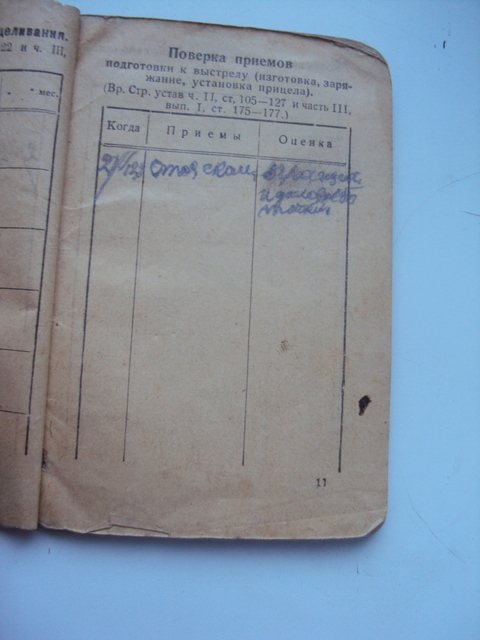 целивания.
22 и ч. III,
мес.
Поверка приемов
подготовки к выстрелу (изготовка, заря-
жание, установка прицела).
(Вр. Стр. устав ч. II, ст. 105—127 и часть III,
вып. I, ст. 175—177.)
Когда Приемы Оценка
стоя
11